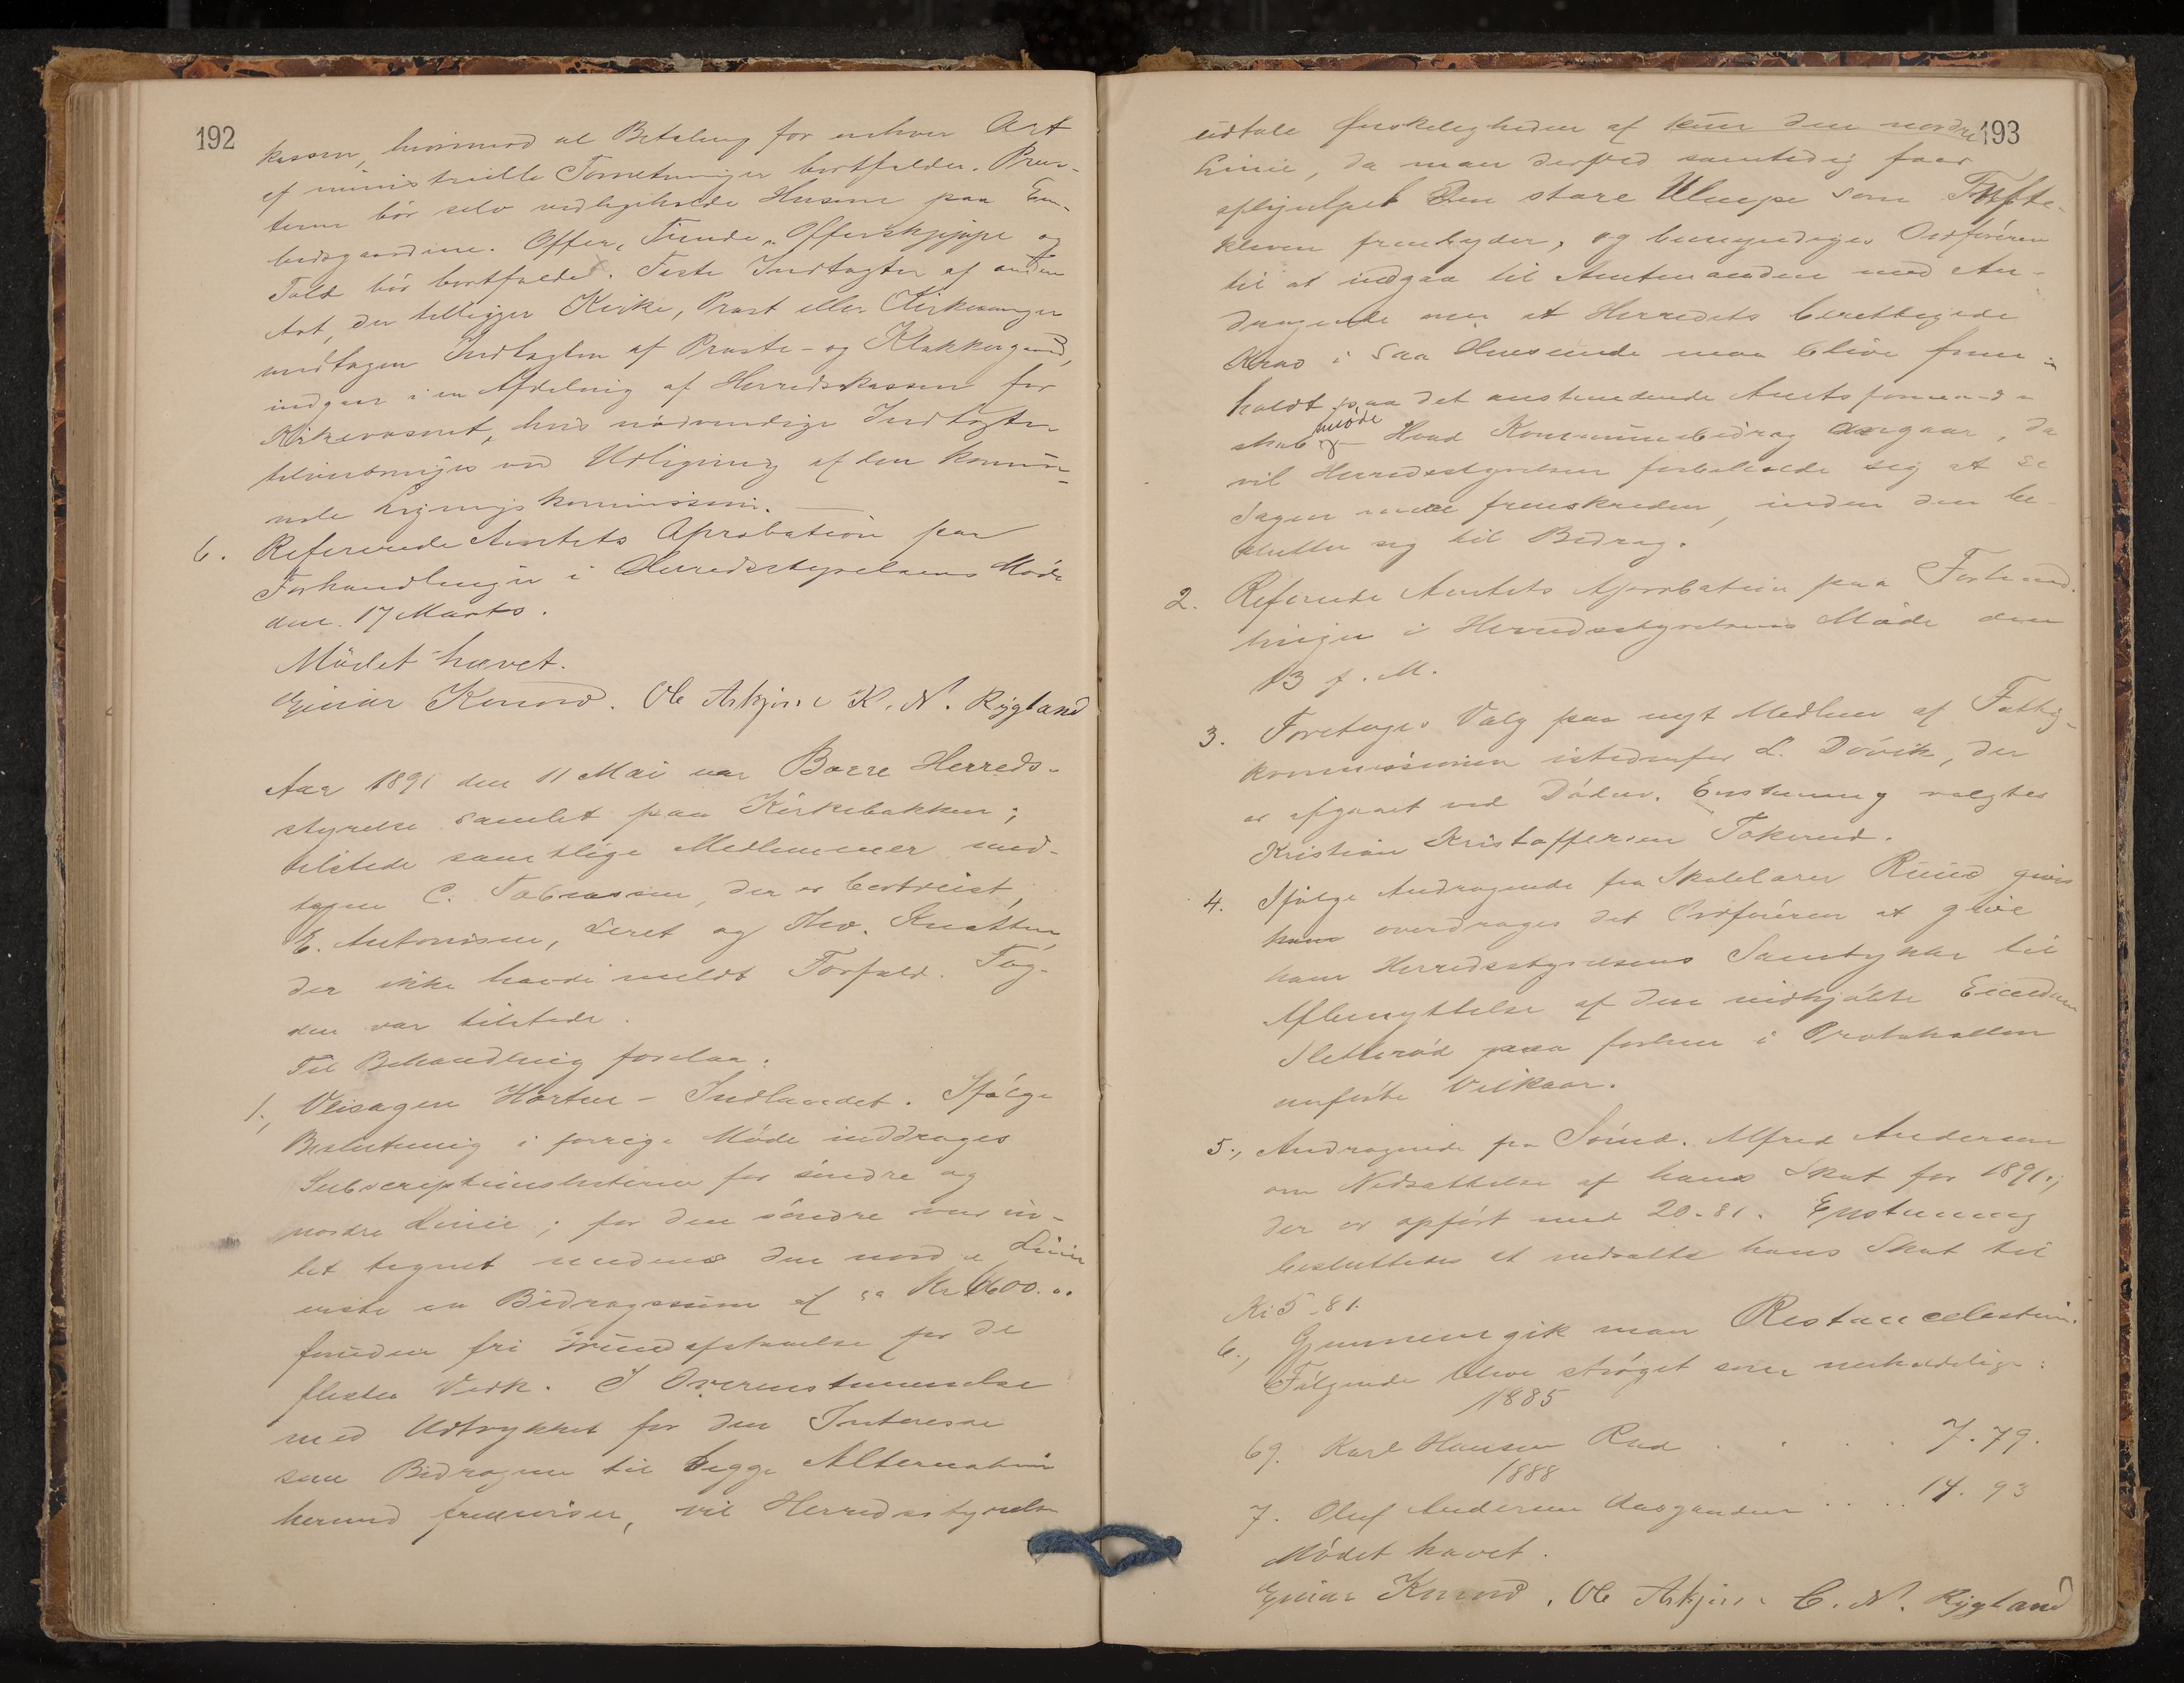 192
kassen, hvorimod al Betaling for enhver Art
af ministrielle Forretninger bortfalder. Præs-
terne bör selv vedligeholde Husene paa Em-
bedsgaardene. Offer, Tiende, Offerskjæppe og
Told bör bortfalde. Faste Indtægter af anden
Art, der tilligger Kirke, Præst eller Kirkesanger
undtagen Indtægten af Præste- og Klokkergaard,
indgaar i en Afdeling af Herredskassen for
Kirkevæsenet, hvis nödvendige Indtægter
tilveiebringes ved Udligning af den kommu-
nale Ligningskommission.
6. Refererede Amtets Aprobation paa
Forhandlinger i Herredsstyrelsens Möde
den 17 Marts.
Mödet hævet.
Einar Konow. Ole Askjem K. N. Rygland
Aar 1891 den 11 Mai var Borre Herreds-
styrelse samlet paa Kirkebakken;
tilstede samtlige Medlemmer und-
tagen C. Tobiassen, der er bortreist,
E. Antonisen, Leret og Thv. Knatten,
der ikke havde meldt Forfald. Fog-
den var tilstede.
Til Behandling forelaa:
1., Veisagen Horten - Indlandet. Ifölge
Beslutning i forrige Möde inddrages
Subscriptionslisterne for söndre og
nordre Linie; for den söndre var in-
tet tegnet medens den nordre Linie
viste en Bidragssum af ca Kr 6600.00
foruden fri Grundafstaaelse for de
flestes Vedk. I Overenstemmelse
med Udtrykket for den Interesse
som Bidragene til begge Alternativer
herved fremviser, vil Herredsstyrelsen
193
udtale Önskeligheden af kun den nordre
Linie, da man derved samtidig faar
afhjulpet den store Ulempe som Tufte-
kleven frembyder, og bemyndiges Ordföreren
til at indgaa til Amtmanden med An-
dragende om at Herredets berettigede
Krav i saa Henseende maa blive frem-
holdt paa det anstundende Amtsformand-
skabsmöde Hvad Kommunebidrag angaar, da
vil Herredsstyrelsen forbeholde sig at se
Sagen mere fremskreden, inden den be-
slutter sig til Bidrag.
2. Refererede Amtets Aprobation paa Forhand-
linger i Herredsstyrelsens Möde den
13 f. M.
3. Foretoges Valg paa nyt Medlem af Fattig-
kommissionen istedenfor L. Dövik, der
er afgaaet ved Döden. Enstemmig valgtes
Kristian Kristoffersen Tokerud.
4. Ifölge Andragende fra Skolelærer Ruud gives
ham overdrages det Ordföreren at give
ham Herredsstyrelsens Samtykke til
Afbenyttelse af den indkjöbte Eiendom
Sletteröd paa forhen i Protokollen
anförte Vilkaar.
5., Andragende fra Sömd. Alfred Andersen
om Nedsættelse af hans Skat for 1891.;
der er opfört med 20.81. Enstemmig
besluttedes at nedsætte hans Skat til
Kr 5.81.
6., Gjennemgik man Restancelisten.
Fölgende blev ströget som uerholdelige:
1885
69. Karl Hansen Rød . . . . 7.79.
1888
7. Oluf Andersen Aasgaarden . . . . 14.93
Mödet hævet.
Einar Konow. Ole Askjem C. N. Rygland